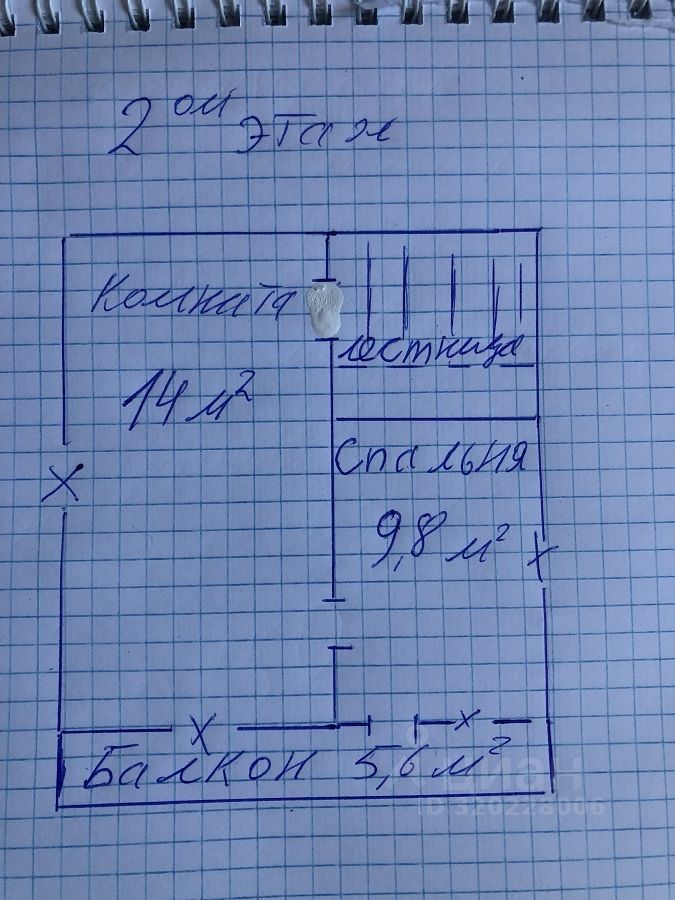 2ой этаж
Комната
14 м²
лестница
Спальня
9,8 м²
Балкон 5,6 м²
циан
ID 320228006